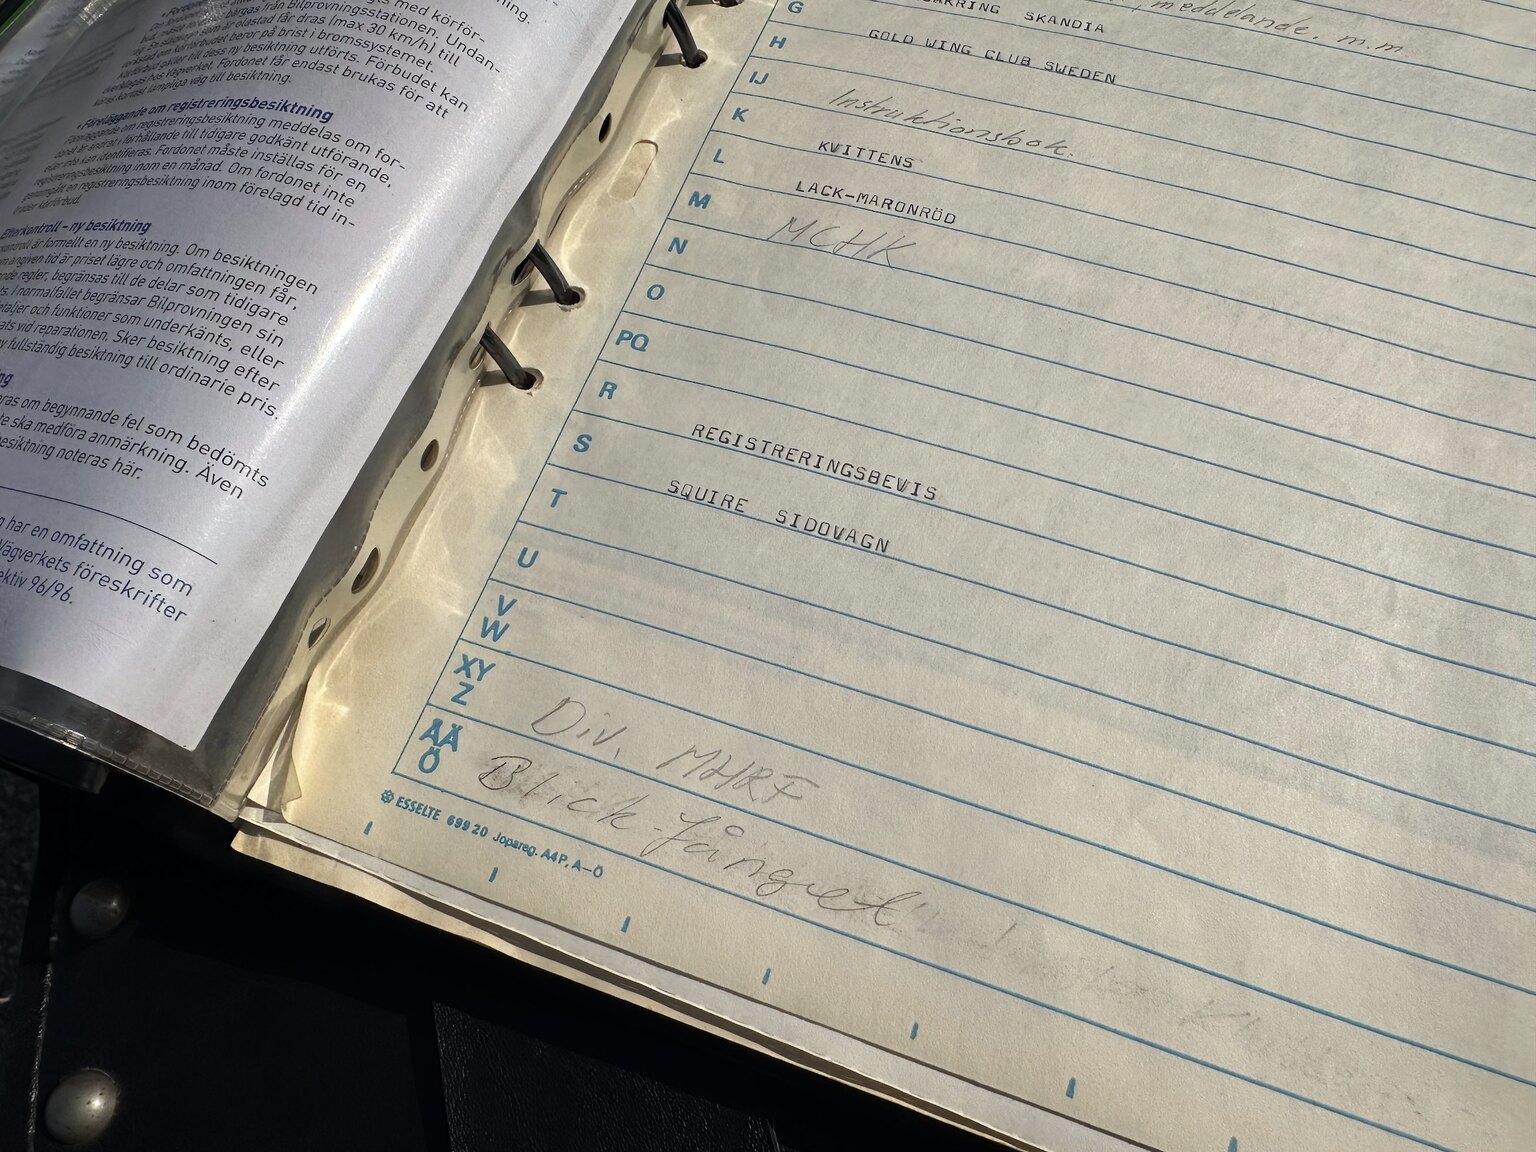 med körför-
ning.
bärgas från Bilprovningsstationen. Undan-
elastad får dras (max 30 km/h) till
beror på brist i bromssystemet.
gäller till dess ny besiktning utförts. Förbudet kan
hos Vägverket. Fordonet får endast brukas för att
lämpliga väg till besiktning.
• Föreläggande om registreringsbesiktning
Föreläggande om registreringsbesiktning meddelas om for-
donet är ändrat i förhållande till tidigare godkänt utförande,
eller inte kan identifieras. Fordonet måste inställas för en
registreringsbesiktning inom en månad. Om fordonet inte
genomgått en registreringsbesiktning inom förelagd tid in-
träder körförbud.
Efterkontroll – ny besiktning
kontroll är formellt en ny besiktning. Om besiktningen
angiven tid är priset lägre och omfattningen får,
regler, begränsas till de delar som tidigare
I normalfallet begränsar Bilprovningen sin
detaljer och funktioner som underkänts, eller
vid reparationen. Sker besiktning efter
fullständig besiktning till ordinarie pris.
om begynnande fel som bedömts
ska medföra anmärkning. Även
besiktning noteras här.
har en omfattning som
Vägverkets föreskrifter
96/96.
meddelande. m.m.
G SKANDIA
H GOLD WING CLUB SWEDEN
IJ Instruktionsbok.
K KVITTENS
L LACK-MARONRÖD
M MCHK
N
O
PQ
R REGISTRERINGSBEVIS
S SQUIRE SIDOVAGN
T
U
V
W
XY
Z Div. MHRF
ÅÄ
Ö Blick-fånget
ESSELTE 699 20 Jopareg. A4P, A–Ö